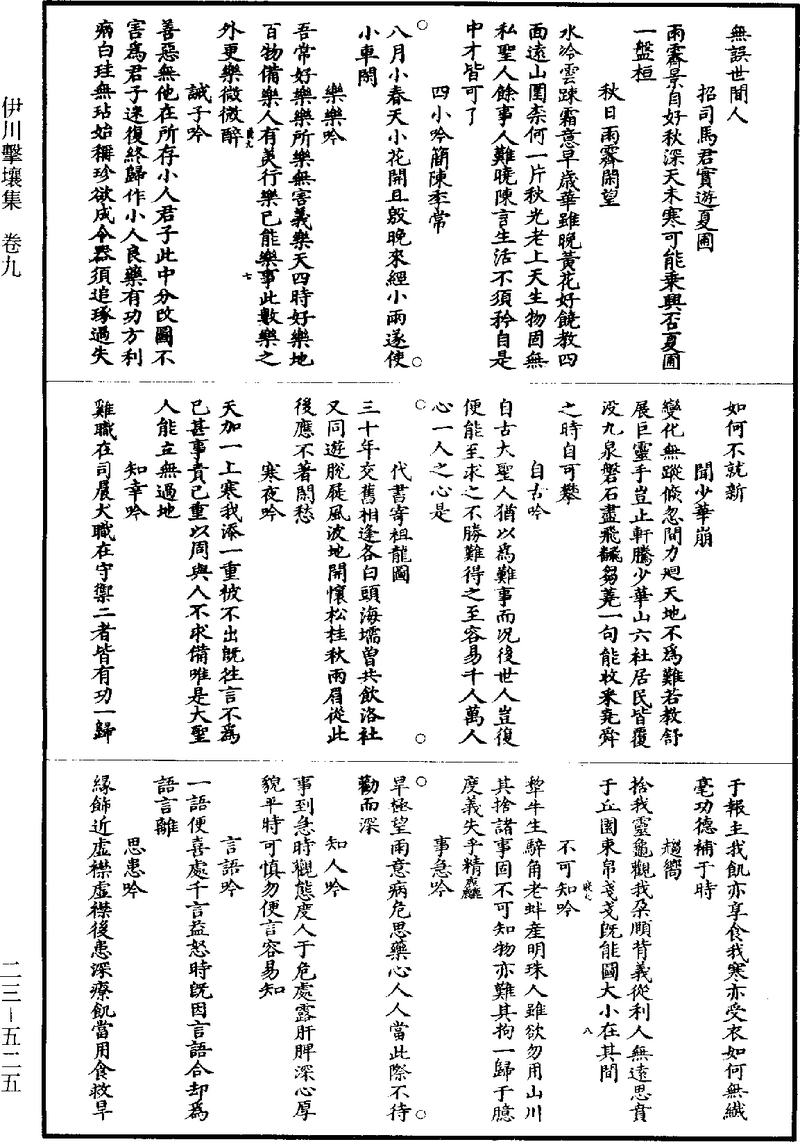 伊川擊壤集 卷九
無誤世間人
招司馬君實遊夏圃
雨霽景自好秋深天未寒可能乘興否夏圃
一盤桓
秋日雨霽閑望
水冷雲踈霜意早歲華雖晚黃花好饒教四
面遠山圍柰何一片秋光老上天生物固無
私聖人餘事人難曉陳言生活不須矜自是
中才皆可了
四小吟簡陳季常
八月小春天小花開且殷晚來經小雨遂使
小車閑
樂樂吟
吾常好樂樂所樂無害義樂天四時好樂地
百物備樂人有美行樂己能樂事此數樂之
外更樂微微醉
誡子吟
善惡無他在所存小人君子此中分改圖不
害為君子迷復終歸作小人良藥有功方利
病白珪無玷始稱珍欲成令器須追琢過失
如何不就新
聞少華崩
變化無蹤倐忽間力廻天地不為難若教舒
展巨靈手豈止軒騰少華山六社居民皆覆
没九泉磐石盡飛飜芻蕘一句能收采堯舜
之時自可攀
自古吟
自古大聖人猶以為難事而况後世人豈復
便能至求之不勝難得之至容易千人萬人
心一人之心是
代書寄祖龍圖
三十年交舊相逢各白頭海壖曾共飲洛社
又同遊脫屣風波地開懷松桂秋兩眉從此
後應不著閑愁
寒夜吟
天加一上寒我添一重被不出既往言不為
已甚事責己重以周與人不求備唯是大聖
人能立無過地
知幸吟
雞職在司晨犬職在守禦二者皆有功一歸
于報主我飢亦享食我寒亦受衣如何無纖
毫功德補于時
趨嚮
捨我靈龜觀我朵頤背義從利人無遠思賁
于丘園束帛戔戔既能圖大小在其間
不可知吟
犂牛生騂角老蚌產明珠人雖欲勿用山川
其捨諸事固不可知物亦難其拘一歸于臆
度義失乎精麄
事急吟
旱極望雨意病危思藥心人人當此際不待
勸而深
知人吟
事到急時觀態度人于危處露肝脾深心厚
貌平時可慎勿便言容易知
言語吟
一語便喜處千言益怒時既因言語合却為
語言離
思患吟
緣飾近虛襟虛襟後患深療飢當用食救旱
二三-五二五